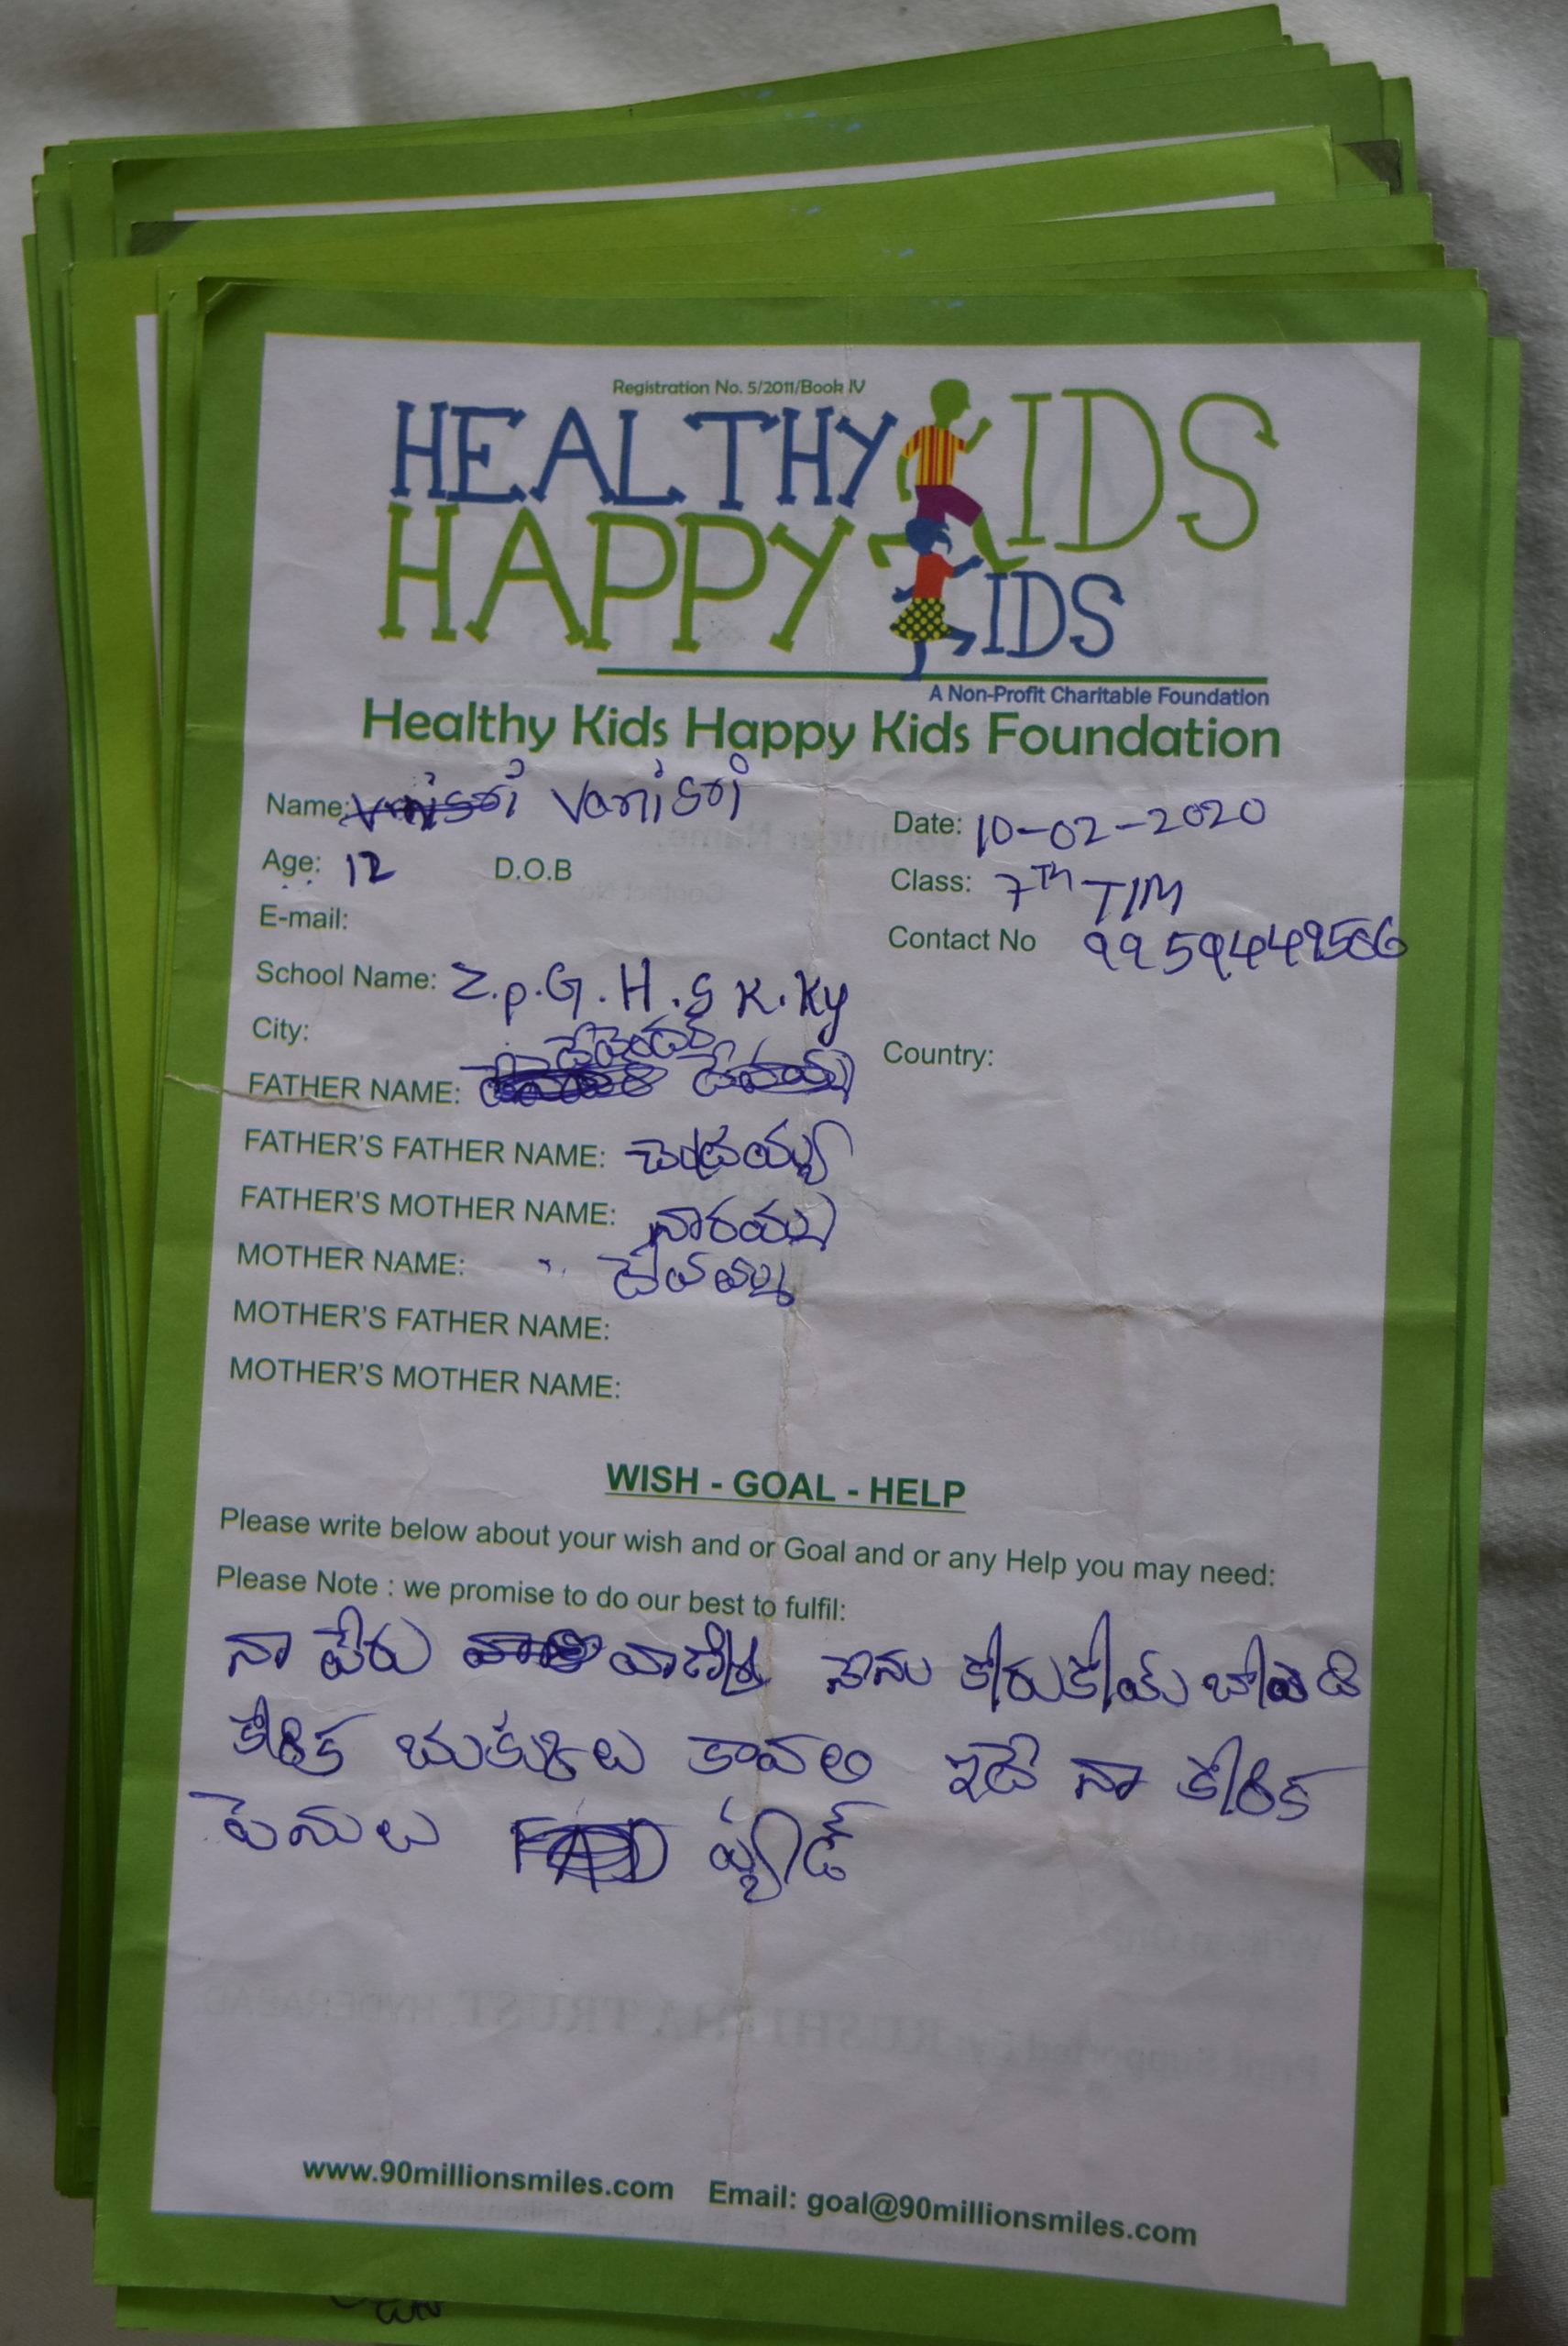 Registration No. 5/2011/Book IV
HEALTHY KIDS
HAPPY KIDS
A Non-Profit Charitable Foundation
Healthy Kids Happy Kids Foundation
Name: Vanisri
Date: 10-02-2020
Age: 12 D.O.B
Class: 7TH T/M
E-mail:
Contact No
School Name: Z.P.G.H.S K.Ky
City:
Country:
FATHER NAME:
FATHER'S FATHER NAME: చంద్రయ్య
FATHER'S MOTHER NAME:
MOTHER NAME: దేవమ్మ
MOTHER'S FATHER NAME:
MOTHER'S MOTHER NAME:
WISH - GOAL - HELP
Please write below about your wish and or Goal and or any Help you may need:
Please Note : we promise to do our best to fulfil:
నా పేరు వాణిశ్రీ నేను
కోరిక కావలి ఇదే నా కోరిక
పెనులు ప్యాడ్
www.90millionsmiles.com Email: goal@90millionsmiles.com